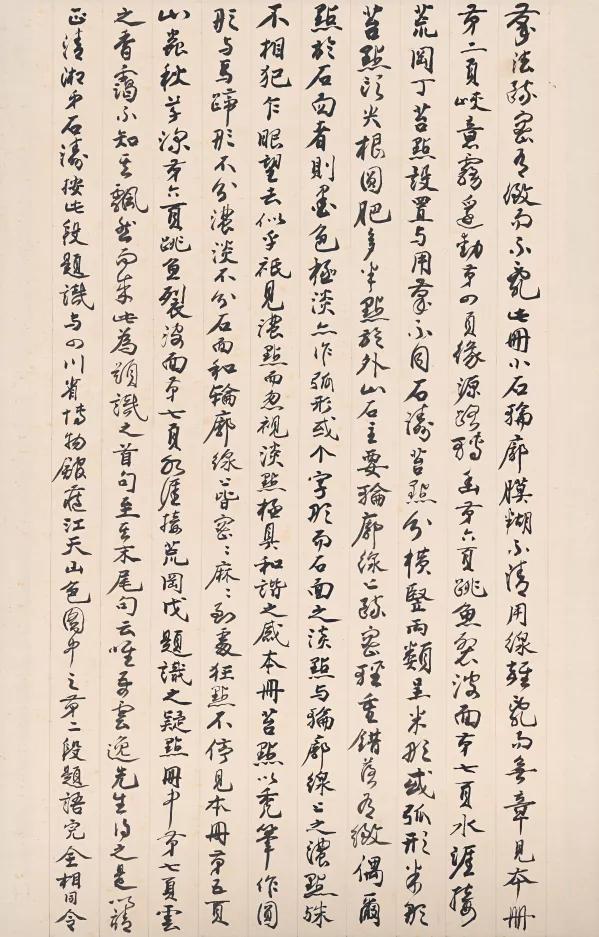 筆法疏密有緻而不亂此冊小石輪廓膜糊不清用線雜亂而無章見本冊
第二頁峽意霧邊動第四頁緣源路轉幽第六頁跳魚裂波面第七頁水涯接
荒岡丁苔點設置与用筆不同石濤苔點分橫豎兩類呈米形或弧形米形
苔點頂尖根圓肥多半點於外山石主要輪廓線上疏密輕重錯落有緻偶爾
點於石面者則墨色極淡亦作弧形或个字形而石面之淡點与輪廓線上之濃點殊
不相犯乍眼望去似乎祇見濃點而忽視淡點極具和諧之感本冊苔點以秃筆作圓
形与馬蹄形不分濃淡不分石面和輪廓線上皆密密麻麻到處狂點不停見本冊第五頁
山農秋草深第六頁跳魚裂波面第七頁水涯接荒岡戊題識之疑點冊中第七頁雲
之香靄不知其飄然而來此為題識之首句至其末尾句云唯吾雲逸先生得之是以請
正清湘弟石濤按此段題識与四川省博物館藏江天山色圖中之第二段題語完全相同令